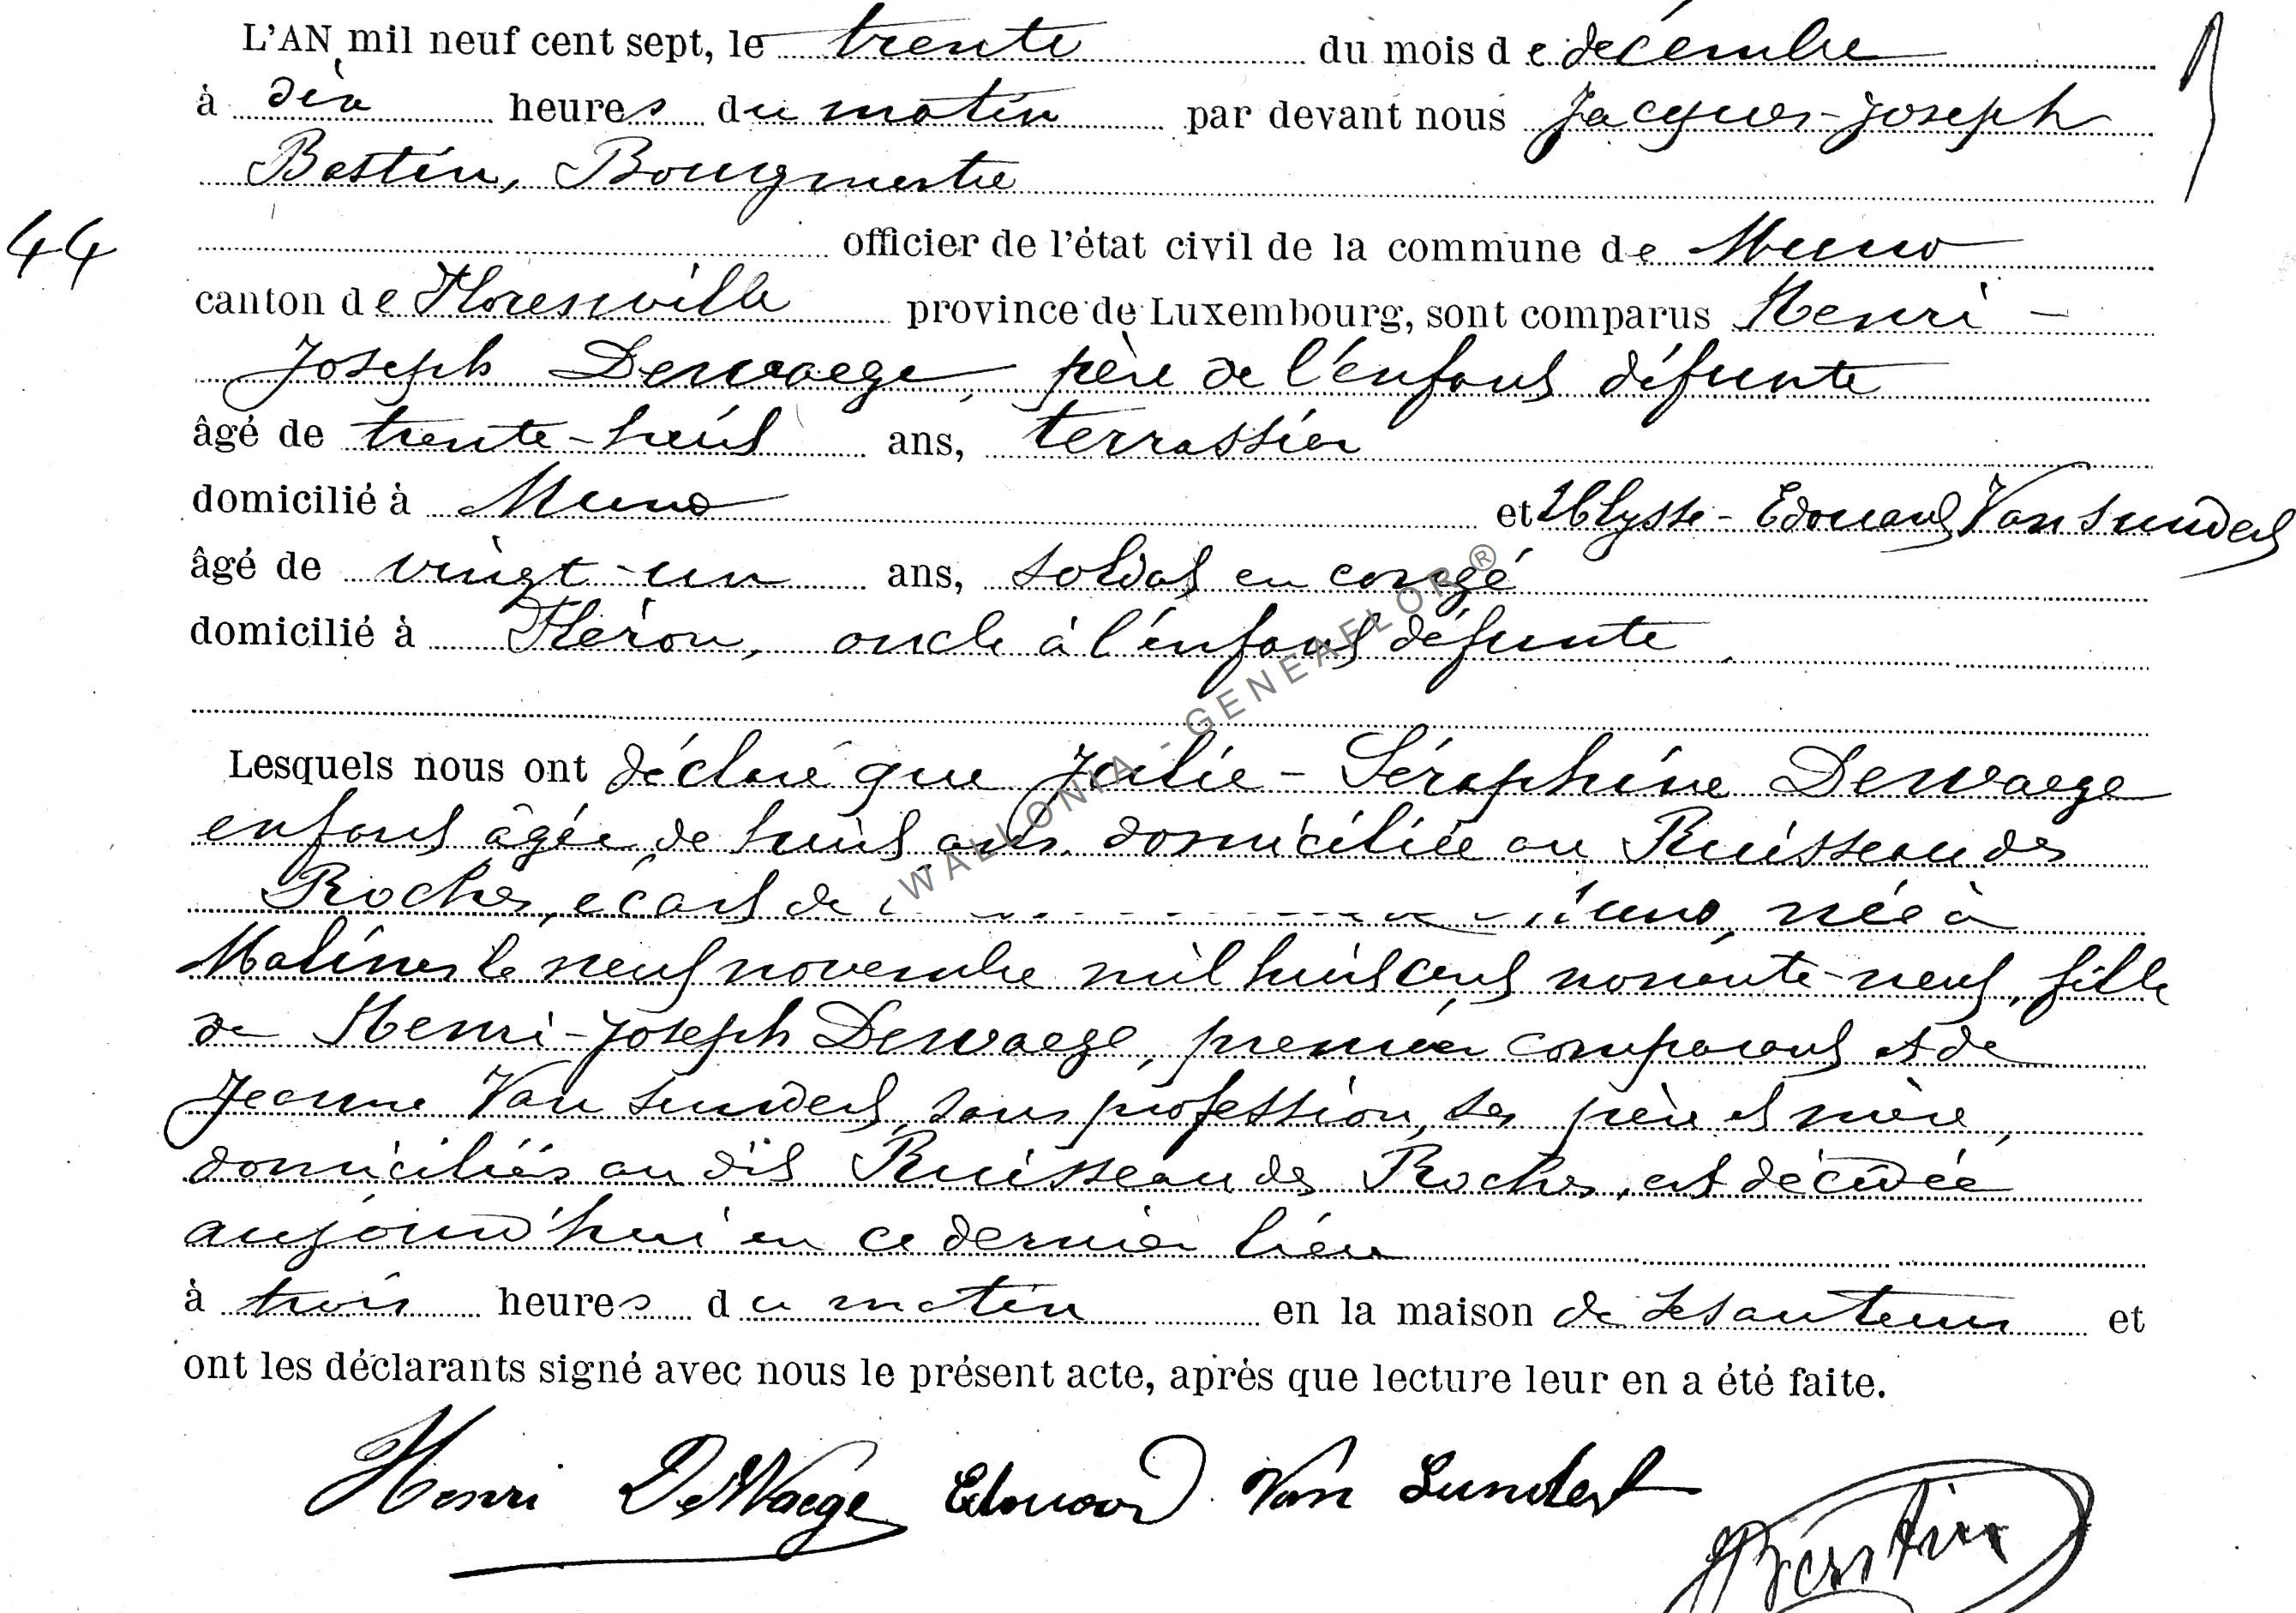 L'AN mil neuf cent sept, le trente du mois de décembre
à dix heures du matin par devant nous Jacques-Joseph
Bastin, Bourgmestre
44
officier de l'état civil de la commune de Muno
canton de Florenville province de Luxembourg, sont comparus Henri-
Joseph Dewaege, père de l'enfant défunte
âgé de trente-huit ans, terrassier
domicilié à Muno et Ulysse-Edouard Van Sundert
âgé de vingt-un ans, soldat en congé
domicilié à Héron, oncle à l'enfant défunte
Lesquels nous ont déclaré que Julie-Séraphine Dewaege
enfant âgée de huit ans domiciliée au Ruisseau des
Roches, écart de Muno, née à
Malines le neuf novembre mil huit cent nonante-neuf, fille
de Henri-Joseph Dewaege, premier comparant et de
Jeanne Van Sundert, sans profession, ses père et mère,
domiciliés au dit Ruisseau des Roches, est décédée
aujourd'hui en ce dernier lieu
à trois heures du matin en la maison de ses auteurs et
ont les déclarants signé avec nous le présent acte, après que lecture leur en a été faite.
Henri DeWaege Edouard Van Sundert
JBastin
WALLONIA - GENEAFLOR®